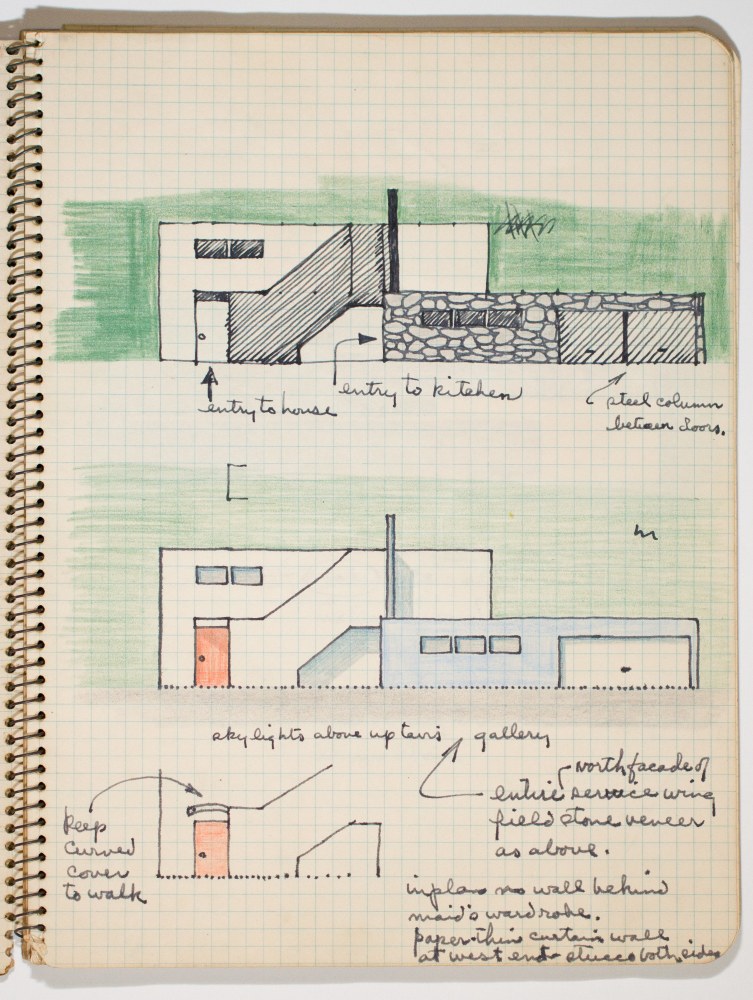 entry to house
entry to kitchen
steel column
between doors.
skylights above upstairs gallery
north facade of
entire service wing
field stone veneer
as above.
Keep
curved
cover
to walk
in plan no wall behind
maid's wardrobe.
paper-thin curtain wall
at west end - stucco both sides